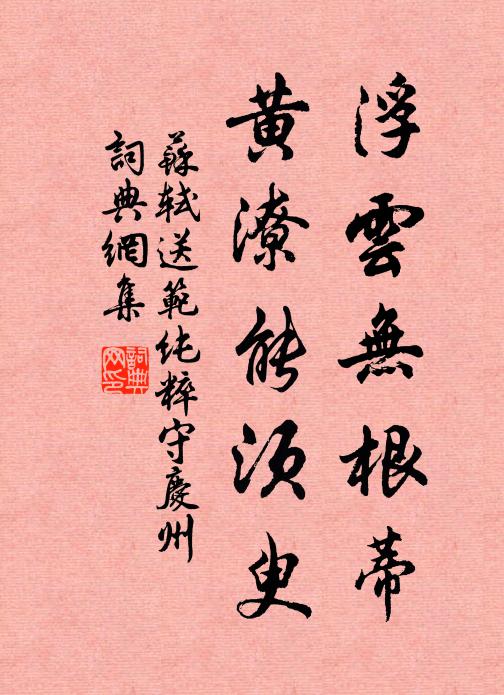 浮雲無根蒂
黄潦能須臾
蘇軾送範純粹守慶州
詞典網集
詞典网印